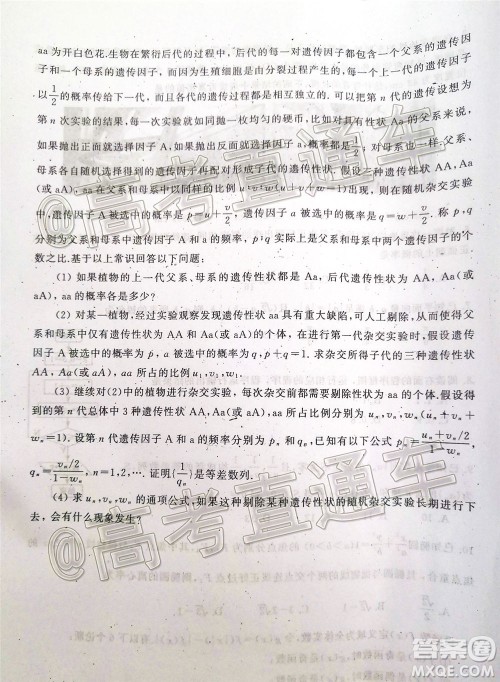 aa 为开白色花.生物在繁衍后代的过程中,后代的每一对遗传因子都包含一个父系的遗传因
子和一个母系的遗传因子,而因为生殖细胞是由分裂过程产生的,每一个上一代的遗传因子
以 1/2 的概率传给下一代,而且各代的遗传过程都是相互独立的.可以把第 n 代的遗传设想为
第 n 次实验的结果,每一次实验就如同抛一枚均匀的硬币,比如对具有性状 Aa 的父系来说,
如果抛出正面就选择因子 A,如果抛出反面就选择因子 a,概率都是 1/2,对母系也一样.父系、
母系各自随机选择得到的遗传因子再配对形成子代的遗传性状.假设三种遗传性状 AA,Aa
(或 aA),aa 在父系和母系中以同样的比例 u:v:w(u+v+w=1)出现,则在随机杂交实验
中,遗传因子 A 被选中的概率是 p=u+v/2,遗传因子 a 被选中的概率是 q=w+v/2. 称 p,q
分别为父系和母系中遗传因子 A 和 a 的频率,p:q 实际上是父系和母系中两个遗传因子的个
数之比.基于以上常识回答以下问题:
(1) 如果植物的上一代父系、母系的遗传性状都是 Aa,后代遗传性状为 AA,Aa(或
aA),aa 的概率各是多少?
(2) 对某一植物,经过实验观察发现遗传性状 aa 具有重大缺陷,可人工剔除,从而使得父
系和母系中仅有遗传性状为 AA 和 Aa(或 aA)的个体,在进行第一代杂交实验时,假设遗传
因子 A 被选中的概率为 p,a 被选中的概率为 q,p+q=1. 求杂交所得子代的三种遗传性状
AA,Aa(或 aA),aa 所占的比例 u₁,v₁,w₁.
(3) 继续对(2)中的植物进行杂交实验,每次杂交前都需要剔除性状为 aa 的个体.假设得
到的第 n 代总体中 3 种遗传性状 AA,Aa(或 aA),aa 所占比例分别为 uₙ,vₙ,wₙ(uₙ+vₙ+
wₙ=1).设第 n 代遗传因子 A 和 a 的频率分别为 pₙ 和 qₙ,已知有以下公式 pₙ=(uₙ+vₙ/2)/(1-wₙ),
qₙ=(vₙ/2)/(1-wₙ), n=1,2,…. 证明{1/qₙ}是等差数列.
(4) 求 uₙ,vₙ,wₙ 的通项公式,如果这种剔除某种遗传性状的随机杂交实验长期进行下
去,会有什么现象发生?
@高考直通车
@高考直通车
答案圈
MXQE.COM